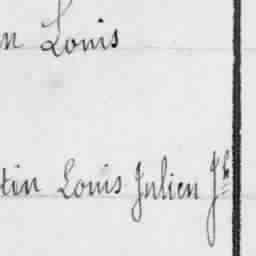 n Louis
tin Louis Julien Jh